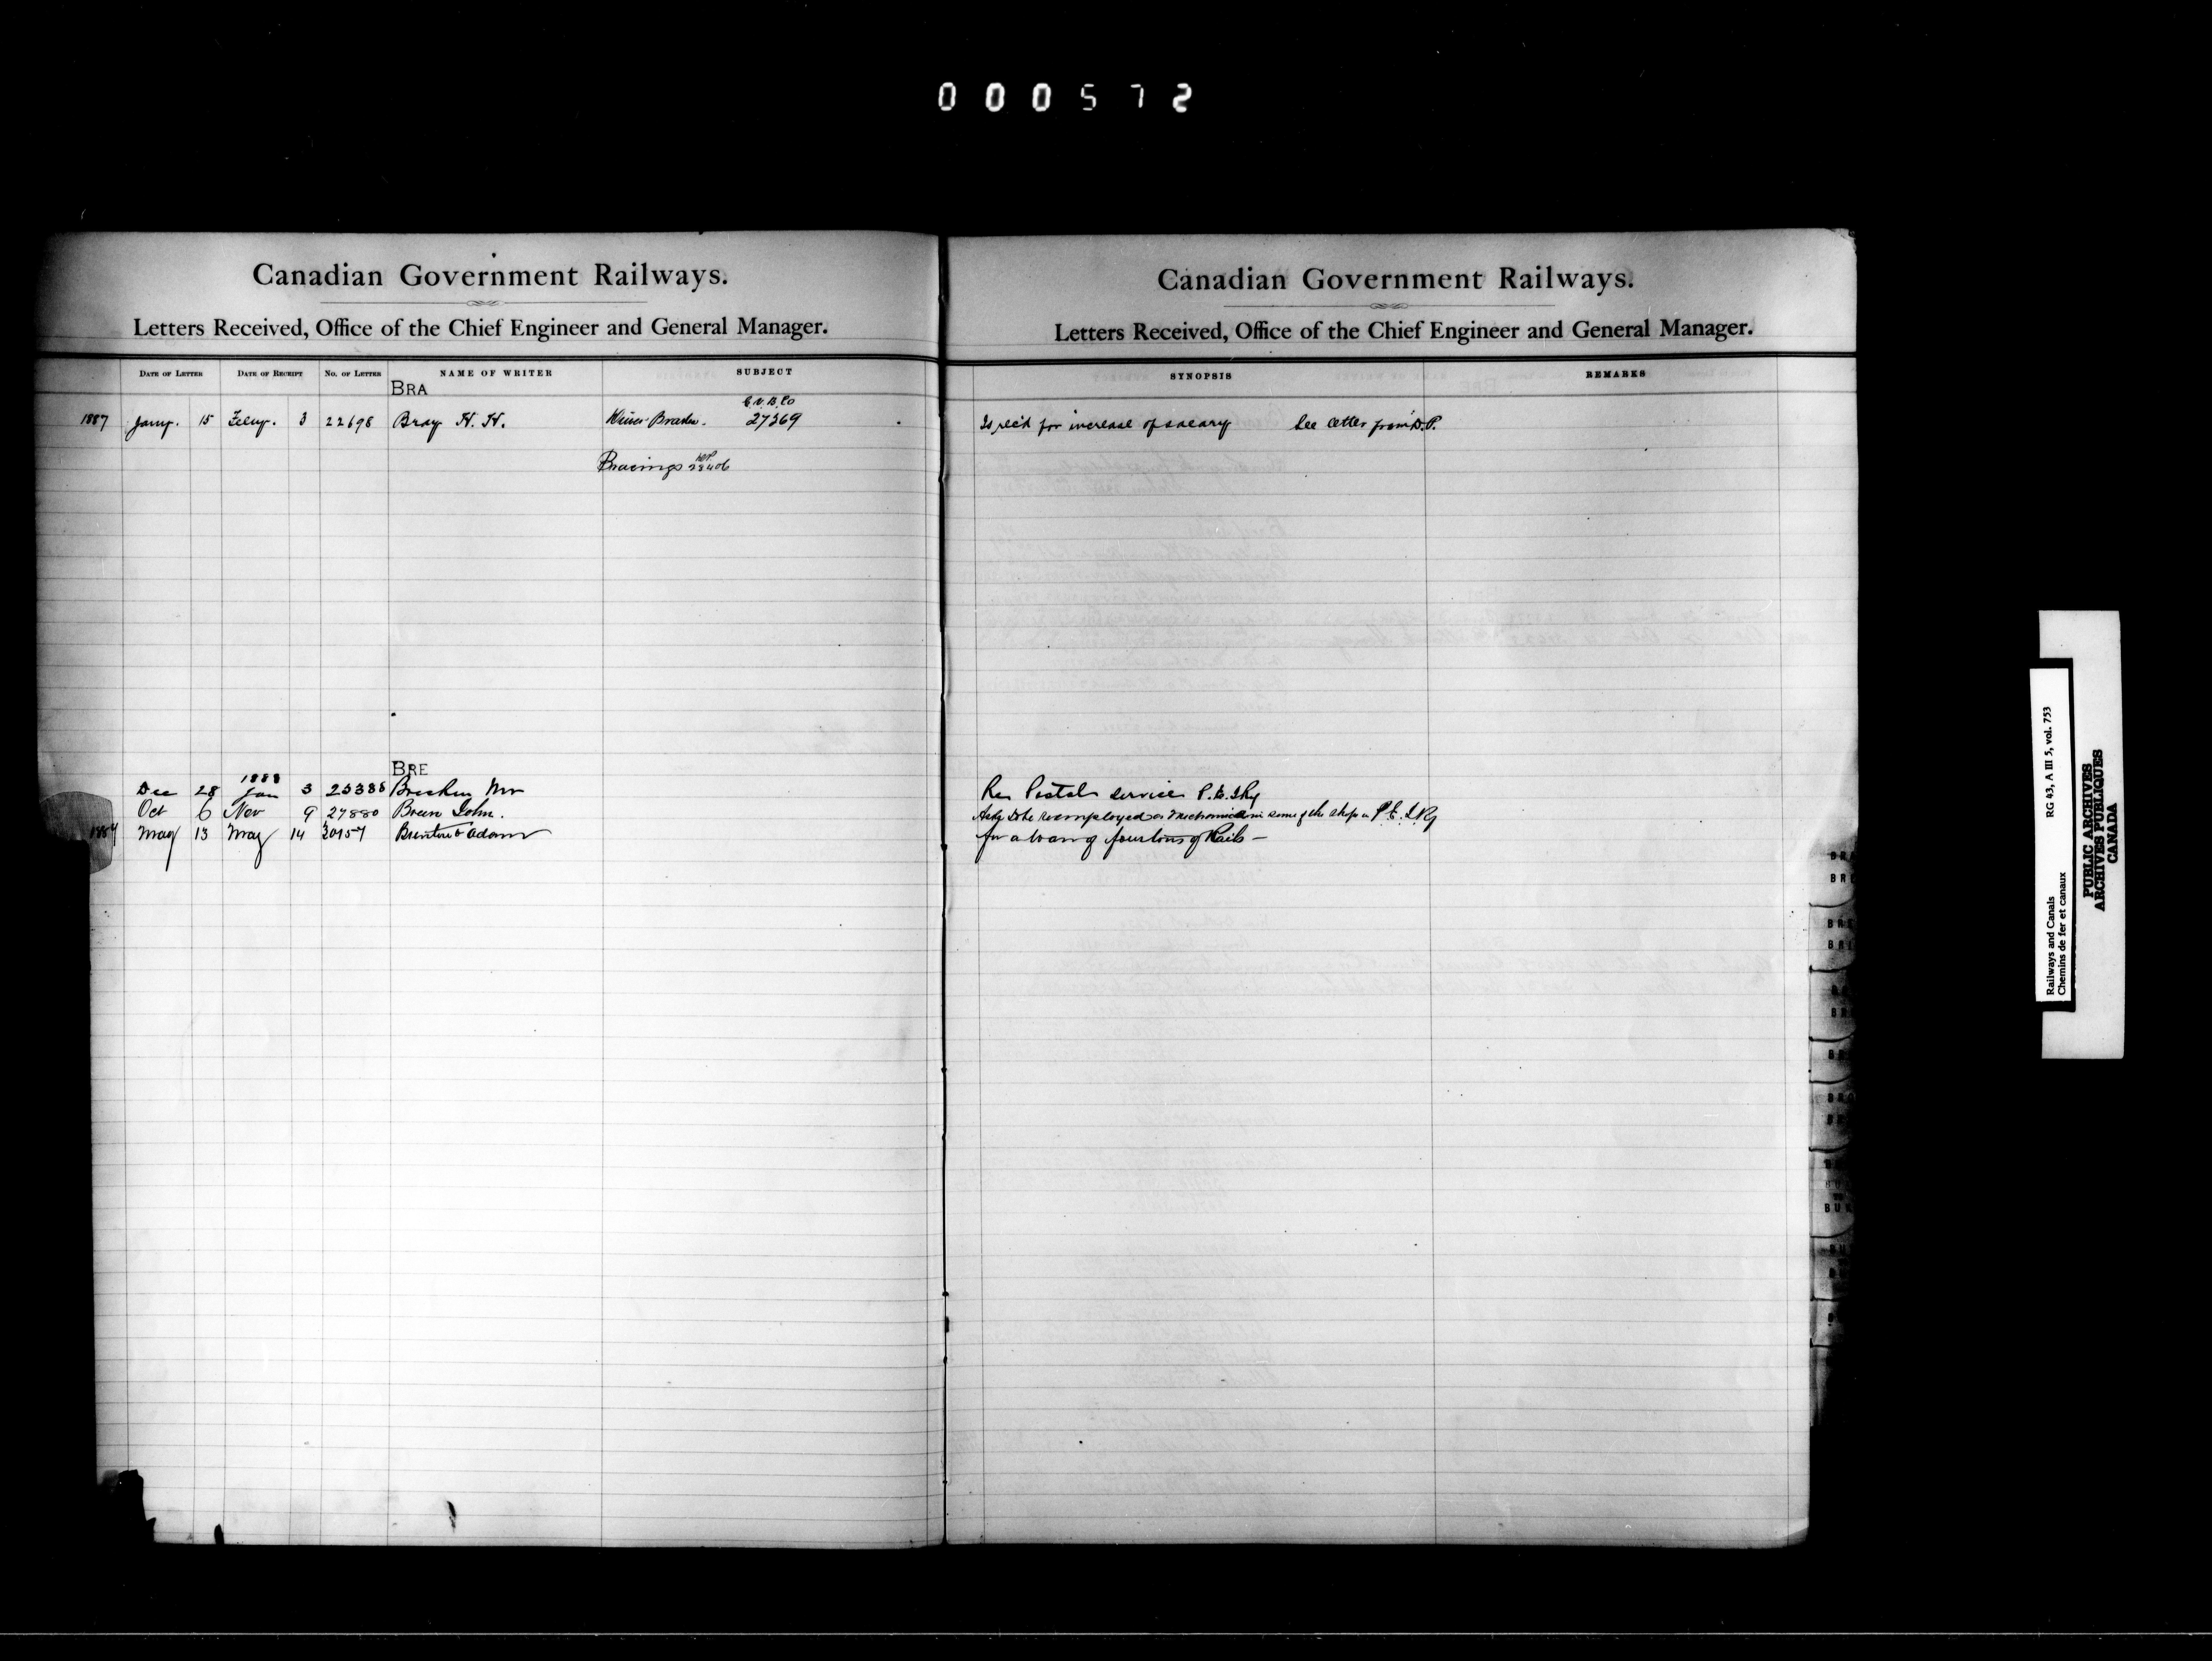 000572
Canadian Government Railways.
Letters Received, Office of the Chief Engineer and General Manager.
DATE OF LETTER DATE OF RECEIPT No. OF LETTER NAME OF WRITER SUBJECT
BRA
C.V.B. Co
1887 Jany. 15 Feby. 3 22698 Bray H. H. 27369
Bracings
BRE
1888
Dec 28 Jan 3 25388 Brecken Mr
Oct 6 Nov 9 27880 Breen John.
May 13 May 14 30157 Adams
Canadian Government Railways.
Letters Received, Office of the Chief Engineer and General Manager.
SYNOPSIS REMARKS
Is rec'd for increase of salary See letter from D.P.
Re Postal service P.E.I.Ry
Asks to be reemployed as mechanic in some of the shops P.E.I.Ry
for a loan of four tons of Rails —
BRE
BRI
BUR
Railways and Canals RG 43, A III 5, vol. 753
Chemins de fer et canaux
PUBLIC ARCHIVES
ARCHIVES PUBLIQUES
CANADA